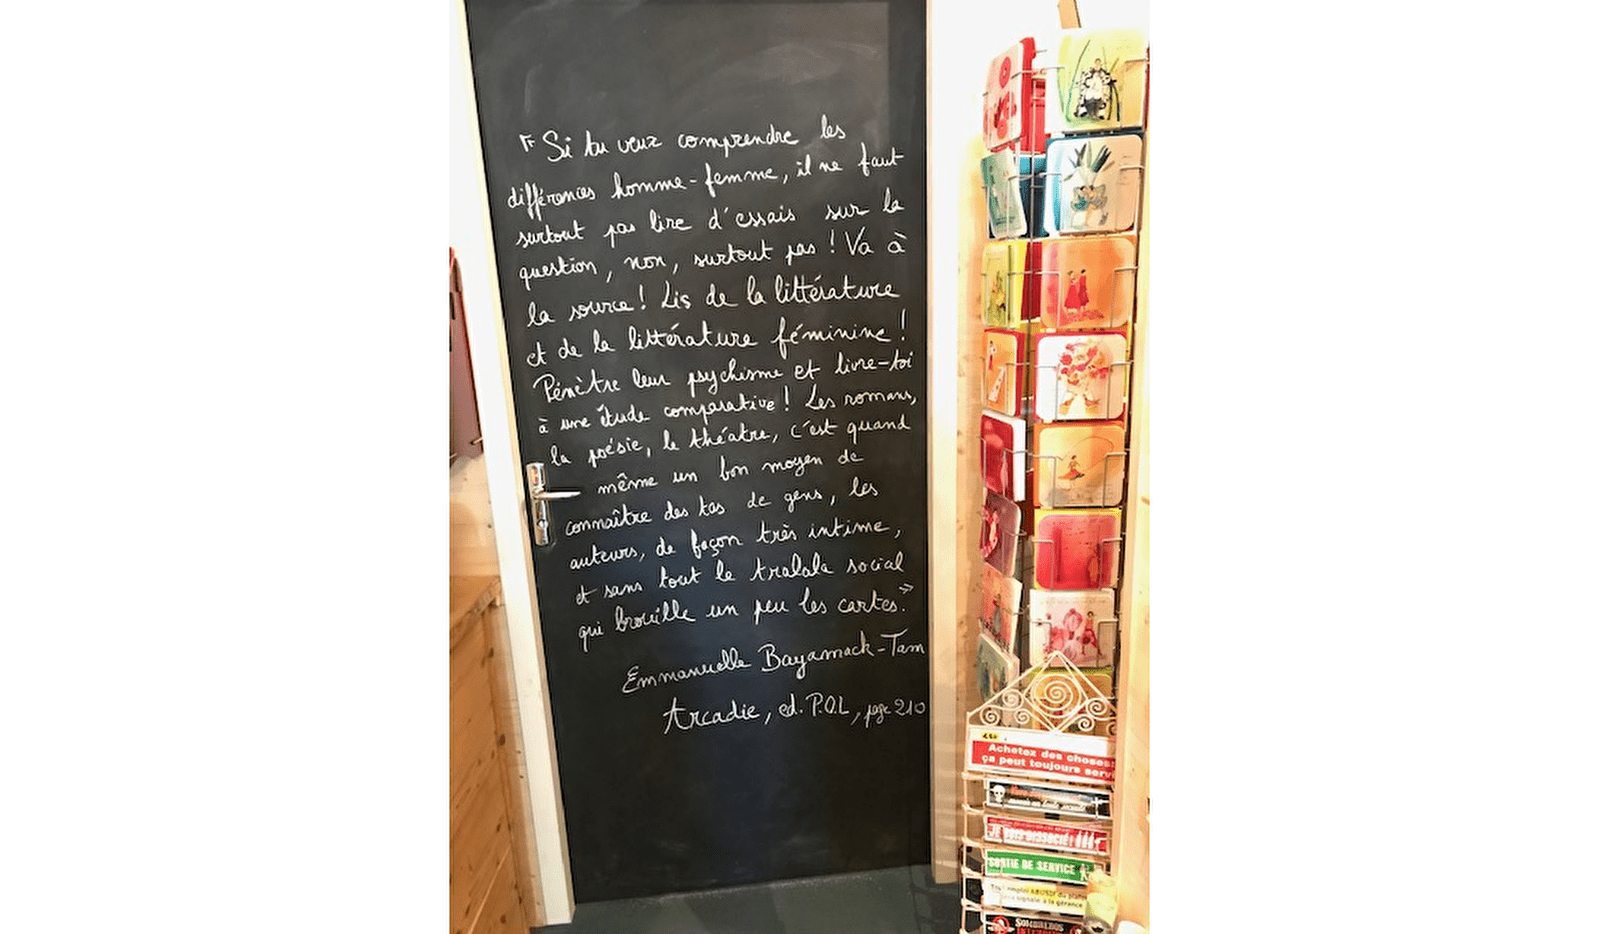 « Si tu veux comprendre les
différences homme-femme, il ne faut
surtout pas lire d'essais sur la
question, non, surtout pas ! Va à
la source ! Lis de la littérature
et de la littérature féminine !
Pénètre leur psychisme et livre-toi
à une étude comparative ! Les romans,
la poésie, le théatre, c'est quand
même un bon moyen de
connaître des tas de gens, les
auteurs, de façon très intime,
et sans tout le tralala social
qui brouille un peu les cartes. »
Emmanuelle Bayamack-Tam
Arcadie, ed. P.O.L, page 210
Achetez des choses
ça peut toujours serv
JE SUIS DISSOCIÉ !
SORTIE DE SERVICE
Tout emploi ABUSIF du
sera signalé à la gérance
SOMBREROS